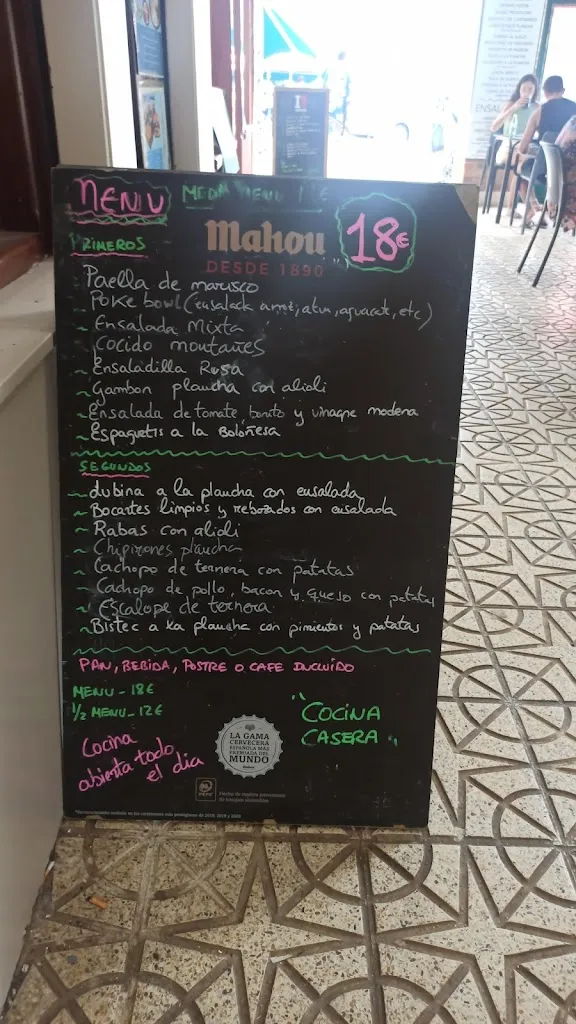 MENU
MEDIO MENU 12€
Mahou
DESDE 1890
18€
PRIMEROS
Paella de marisco
Poke bowl (ensalada arroz, atun, aguacate, etc)
~ Ensalada Mixta
~ Cocido montañes
~ Ensaladilla Rusa
~ Gambon plancha con alioli
~ Ensalada de tomate, bonito y vinagre modena
~ Espaguetis a la Boloñesa
SEGUNDOS
~ Lubina a la plancha con ensalada
~ Bocartes limpios y rebozados con ensalada
~ Rabas con alioli
~ Chipirones plancha
~ Cachopo de ternera con patatas
~ Cachopo de pollo, bacon y queso con patatas
~ Escalope de ternera
~ Bistec a la plancha con pimientos y patatas
PAN, BEBIDA, POSTRE O CAFE INCLUIDO
MENU - 18€
1/2 MENU - 12€
"COCINA
CASERA"
Cocina
abierta todo
el dia
LA GAMA
CERVECERA
ESPAÑOLA MÁS
PREMIADA DEL
MUNDO
PEFC
ENSAL